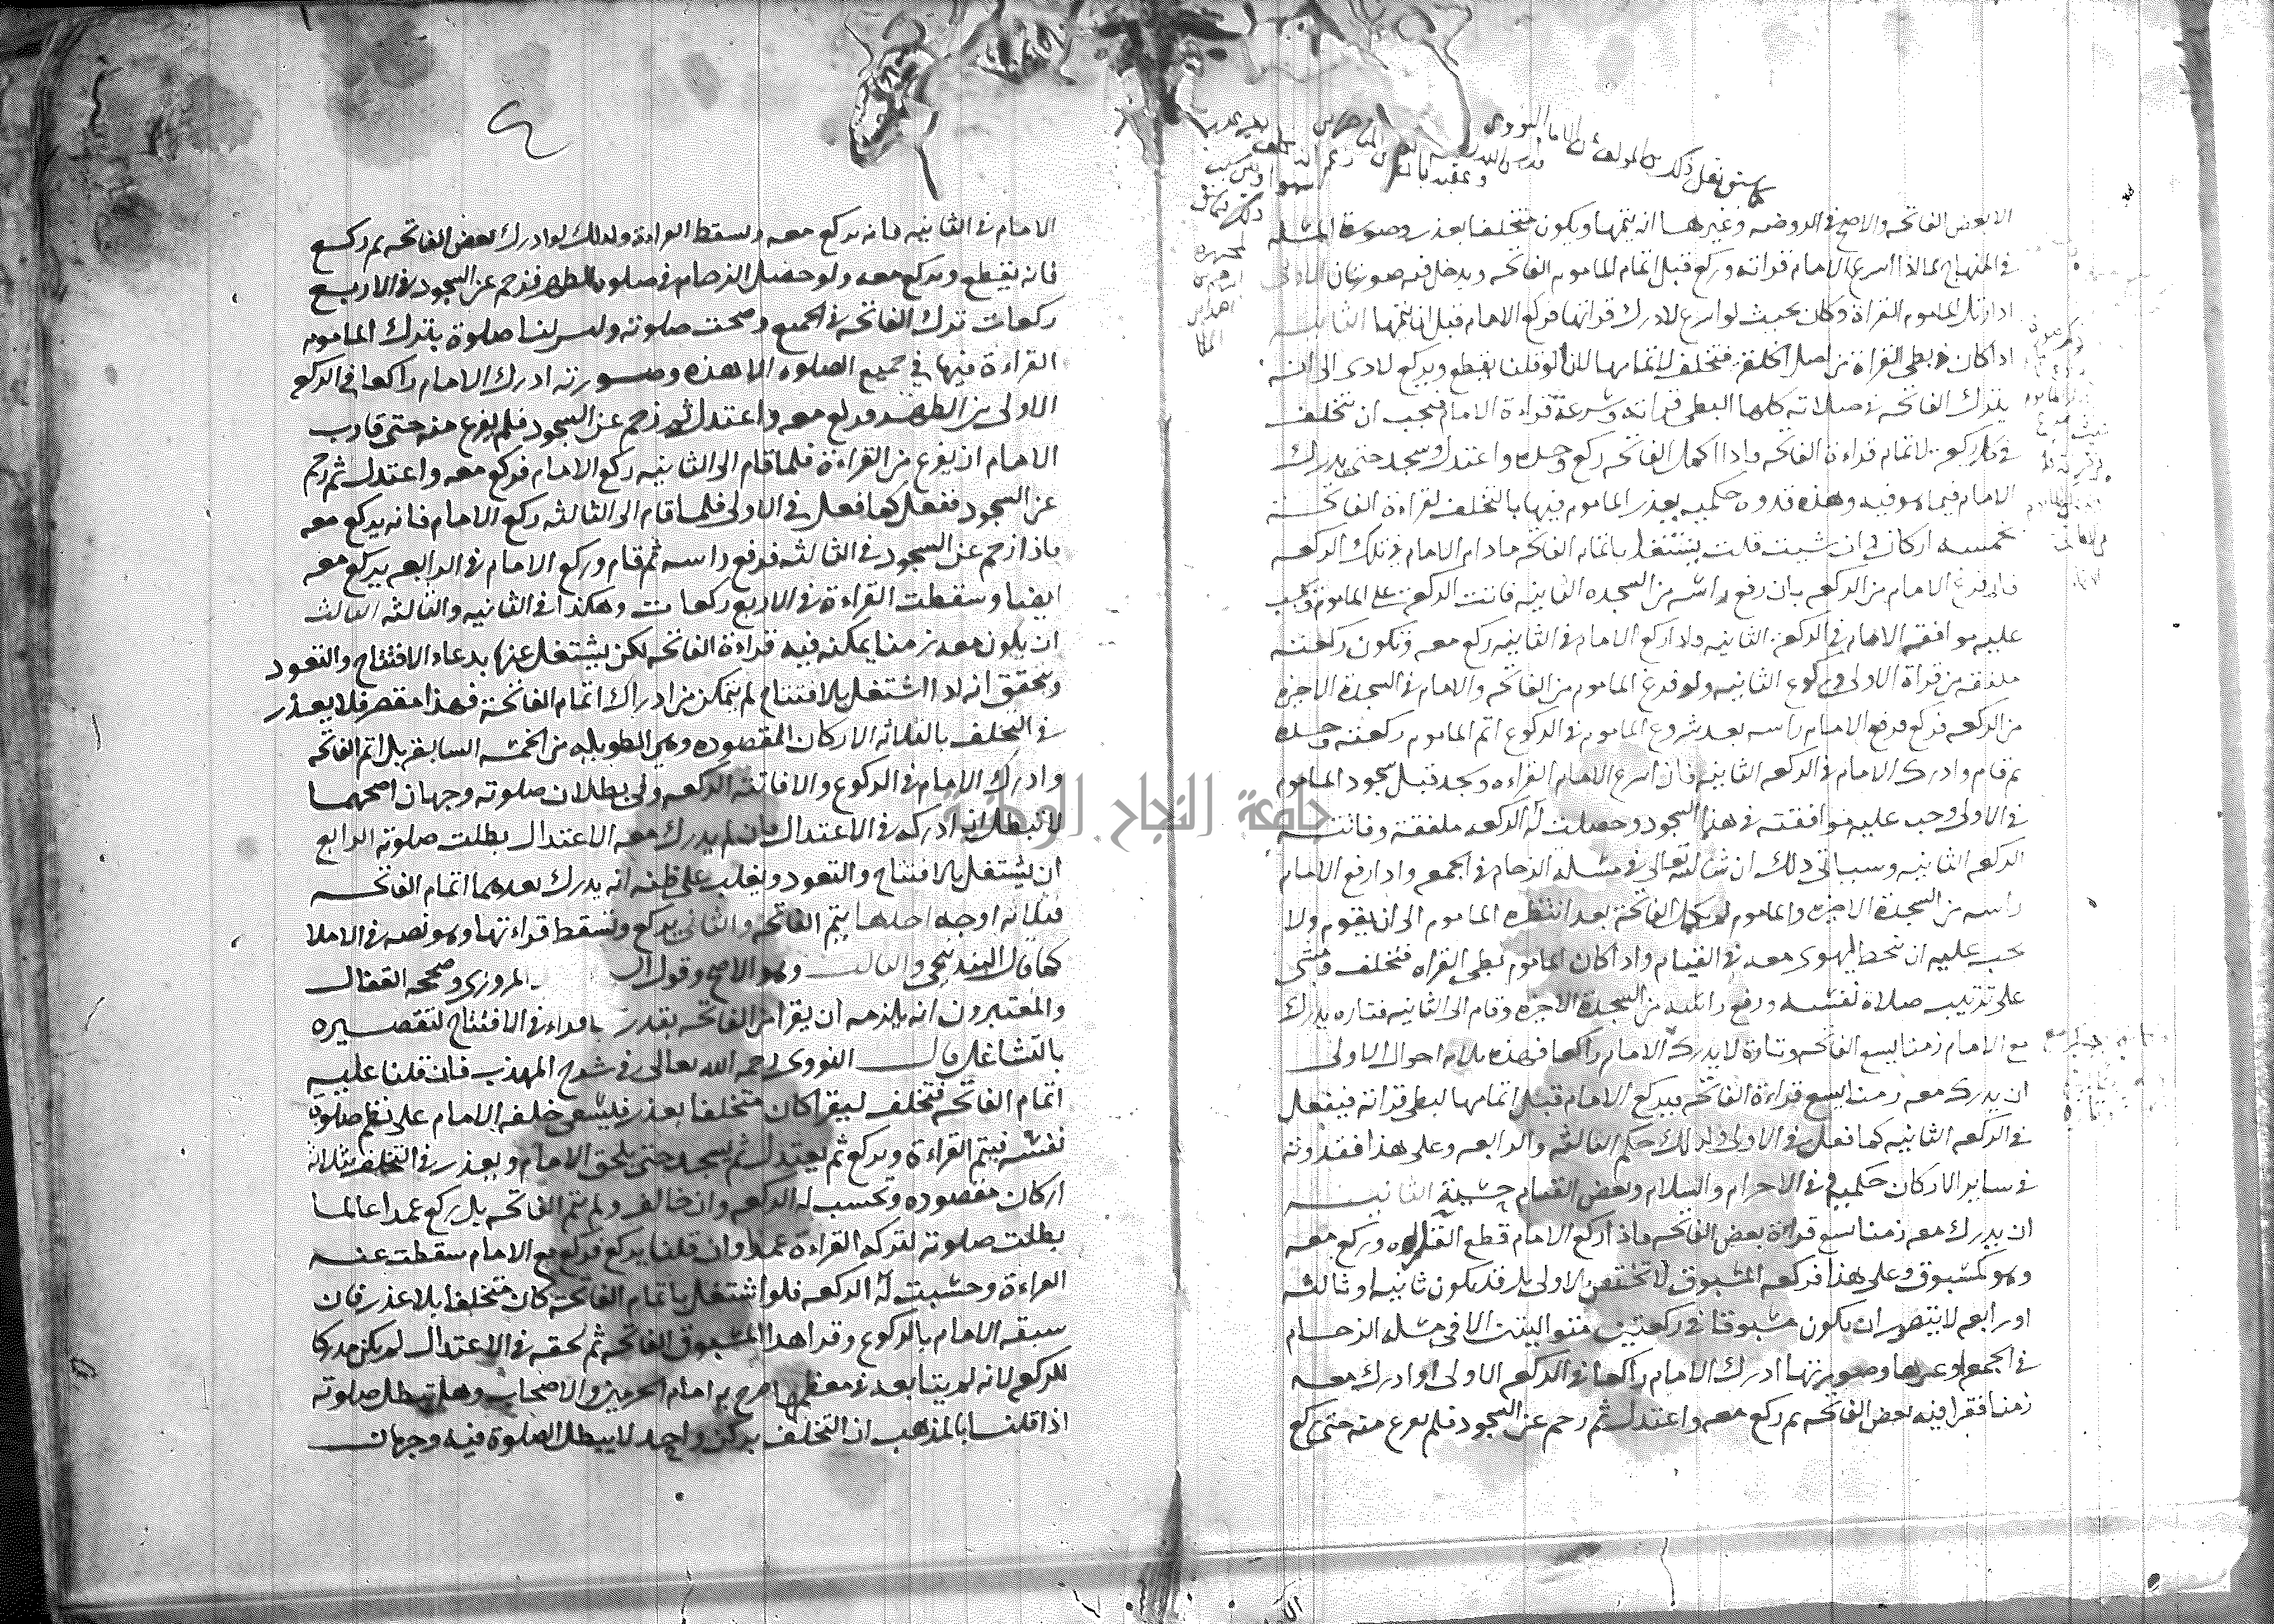 الا بعض الفاتحه والاصح في الروضه وغيرها انه يتمها ويكون متخلفا بعذر وصورة المسله
في المنهاج بما اذا اسرع الامام قراته وركع قبل اتمام الماموم الفاتحه ويدخل فيه صورتان الاولى
اذا رتل الماموم القراة وكان بحيث لو اسرع لادرك قراتها فركع الامام قبل ان يتمها الثانيه
اذا كان بطي القراة من اصل الخلقة فتخلف لاتمامها لانا لو قلنا يقطع ويركع لادى الى انه
يترك الفاتحه في صلاته كلها لبطي قراته وسرعة قراءة الامام فيجب ان يتخلف
في كل ركعة لاتمام قراءة الفاتحه واذا اكمل الفاتحه ركع وحده واعتدل وسجد حتى يدرك
الامام فيما هو فيه وهذه قدوه حكميه يعذر الماموم فيها بالتخلف لقراءة الفاتحة
بخمسه اركان وان شيت قلت يشتغل باتمام الفاتحه مادام الامام في تلك الركعه
فاذا فرغ الامام من الركعه بان رفع راسه من السجده الثانيه فاتت الركعة على الماموم ويجب
عليه موافقة الامام في الركعة الثانيه واذا ركع الامام في الثانيه ركع معه وتكون ركعته
ملفقه من قراة الاولى وركوع الثانيه ولو فرغ الماموم من الفاتحه والامام في السجدة الاخيرة
من الركعه فركع فرفع الامام راسه بعد شروع الماموم في الركوع اتم الماموم ركعته وحده
ثم قام وادرك الامام في الركعه الثانيه فان اسرع الامام القراءه وسجد قبل سجود الماموم
في الاولى وجب عليه موافقته في هذا السجود وحصلت له الركعه ملفقة وفاتته
الركعه الثانيه وسياتي ذلك ان شا الله تعالى في مسله الزحام في الجمعه واذا رفع الامام
راسه من السجدة الاخيره والماموم لم يكمل الفاتحة بعد انتظره الماموم الى ان يقوم ولا
يجب عليه ان ينحط ليهوى معه في القيام واذا كان الماموم بطي القراه فتخلف ومشى
على ترتيب صلاة نفسه ورفع راسه من السجدة الاخيره وقام الى الثانيه فتاره يدرك
مع الامام زمنا يسع الفاتحه وتارة لا يدرك الامام راكعا فهذه ثلاثه احوال الاولى
ان يدرك معه زمنا يسع قراءة الفاتحه فيركع الامام قبل اتمامها لبطي قراته فيفعل
في الركعه الثانيه كما فعل في الاولى وكذلك حكم الثالثه والرابعه وعلى هذا فقدوته
في ساير الاركان حكميه في الاحرام والسلام وبعض القيام حسية الثانيه
ان يدرك معه زمنا يسع قراءة بعض الفاتحه فاذا ركع الامام قطع القراءه وركع معه
وهو كمسبوق وعلى هذا فركعه المسبوق لا تختص بالاولى بل قد يكون ثانيه او ثالثه
او رابعه لا يتصور ان يكون مسبوقا في ركعتين متواليتين الا في مسله الزحام
في الجمعه او غيرها وصورتها ادرك الامام راكعا في الركعه الاولى او ادرك معه
زمنا فقرا فيه بعض الفاتحه ثم ركع معه واعتدل ثم زحم عن السجود فلم يفرغ منه حتى ركع
الامام في الثانيه فانه يركع معه وتسقط القراءة وكذلك لو ادرك بعض الفاتحه ثم ركع
فانه يقطع ويركع معه ولو حصل الزحام في صلوه الظهر فزحم عن السجود في الاربع
ركعات ترك الفاتحه في الجميع وصحت صلوته وليس لنا صلوة يترك الماموم
القراءة فيها في جميع الصلوه الا هذه وصورته ادرك الامام راكعا في الركعه
الاولى من الظهر فركع معه واعتدل ثم زحم عن السجود فلم يفرغ منه حتى قارب
الامام ان يفرغ من القراءة فلما قام الى الثانيه ركع الامام فركع معه واعتدل ثم زحم
عن السجود ففعل كما فعل في الاولى فلما قام الى الثالثه ركع الامام فانه يركع معه
فاذا زحم عن السجود في الثالثه فرفع راسه ثم قام وركع الامام في الرابعه يركع معه
ايضا وسقطت القراءة في الاربع ركعات وهكذا في الثانيه والثالثه الثالث
ان يكون معه زمنا يمكنه فيه قراءة الفاتحه لكن يشتغل عنها بدعاء الافتتاح والتعود
وتحقق انه اذا اشتغل بالافتتاح لم يتمكن من ادراك اتمام الفاتحة فهذا مقصر فلا يعذر
في التخلف بالثلاثه الاركان المقصوده وهي الطويله من الخمسه السابقة بل اتم الفاتحه
وادرك الامام في الركوع والا فاتته الركعه وفي بطلان صلوته وجهان اصحهما
لا تبطل ان ادركه في الاعتدال فان لم يدرك معه الاعتدال بطلت صلوته الرابع
ان يشتغل بالافتتاح والتعود ويغلب على ظنه انه يدرك بعدهما اتمام الفاتحه
فثلاثه اوجه احدها يتم الفاتحه والثاني يركع وتسقط قراءتها وهو نصه في الاملا
كما قال البندنيجي والثالث وهو الاصح وقول المروزي وصححه القفال
والمعتبرون انه يلزمه ان يقرا من الفاتحه بقدر ما قراه في الافتتاح لتقصيره
بالتشاغل قال النووي رحمه الله تعالى في شرح المهذب فان قلنا عليه
اتمام الفاتحه فتخلف ليقرا كان متخلفا بعذر فليسعى خلف الامام على نظم صلوة
نفسه فيتم القراءة ويركع ثم يعتدل ثم يسجد حتى يلحق الامام ويعذر في التخلف بثلاثه
اركان مقصوده وتحسب له الركعه وان خالف ولم يتم الفاتحه بل ركع عمدا عالما
بطلت صلوته لتركه القراءة عمدا وان قلنا يركع فركع مع الامام سقطت عنه
القراءة وحسبت له الركعه فلو اشتغل باتمام الفاتحه كان متخلفا بلا عذر فان
سبقه الامام بالركوع وقرا هذا المسبوق الفاتحه ثم لحقه في الاعتدال لم يكن مدركا
للركعه لانه لم يتابعه في معظمها صرح به امام الحرمين والاصحاب وهل تبطل صلوته
اذا قلنا بالمذهب ان التخلف بركن واحد لا يبطل الصلوة فيه وجهان
جامعة النجاح الوطنية